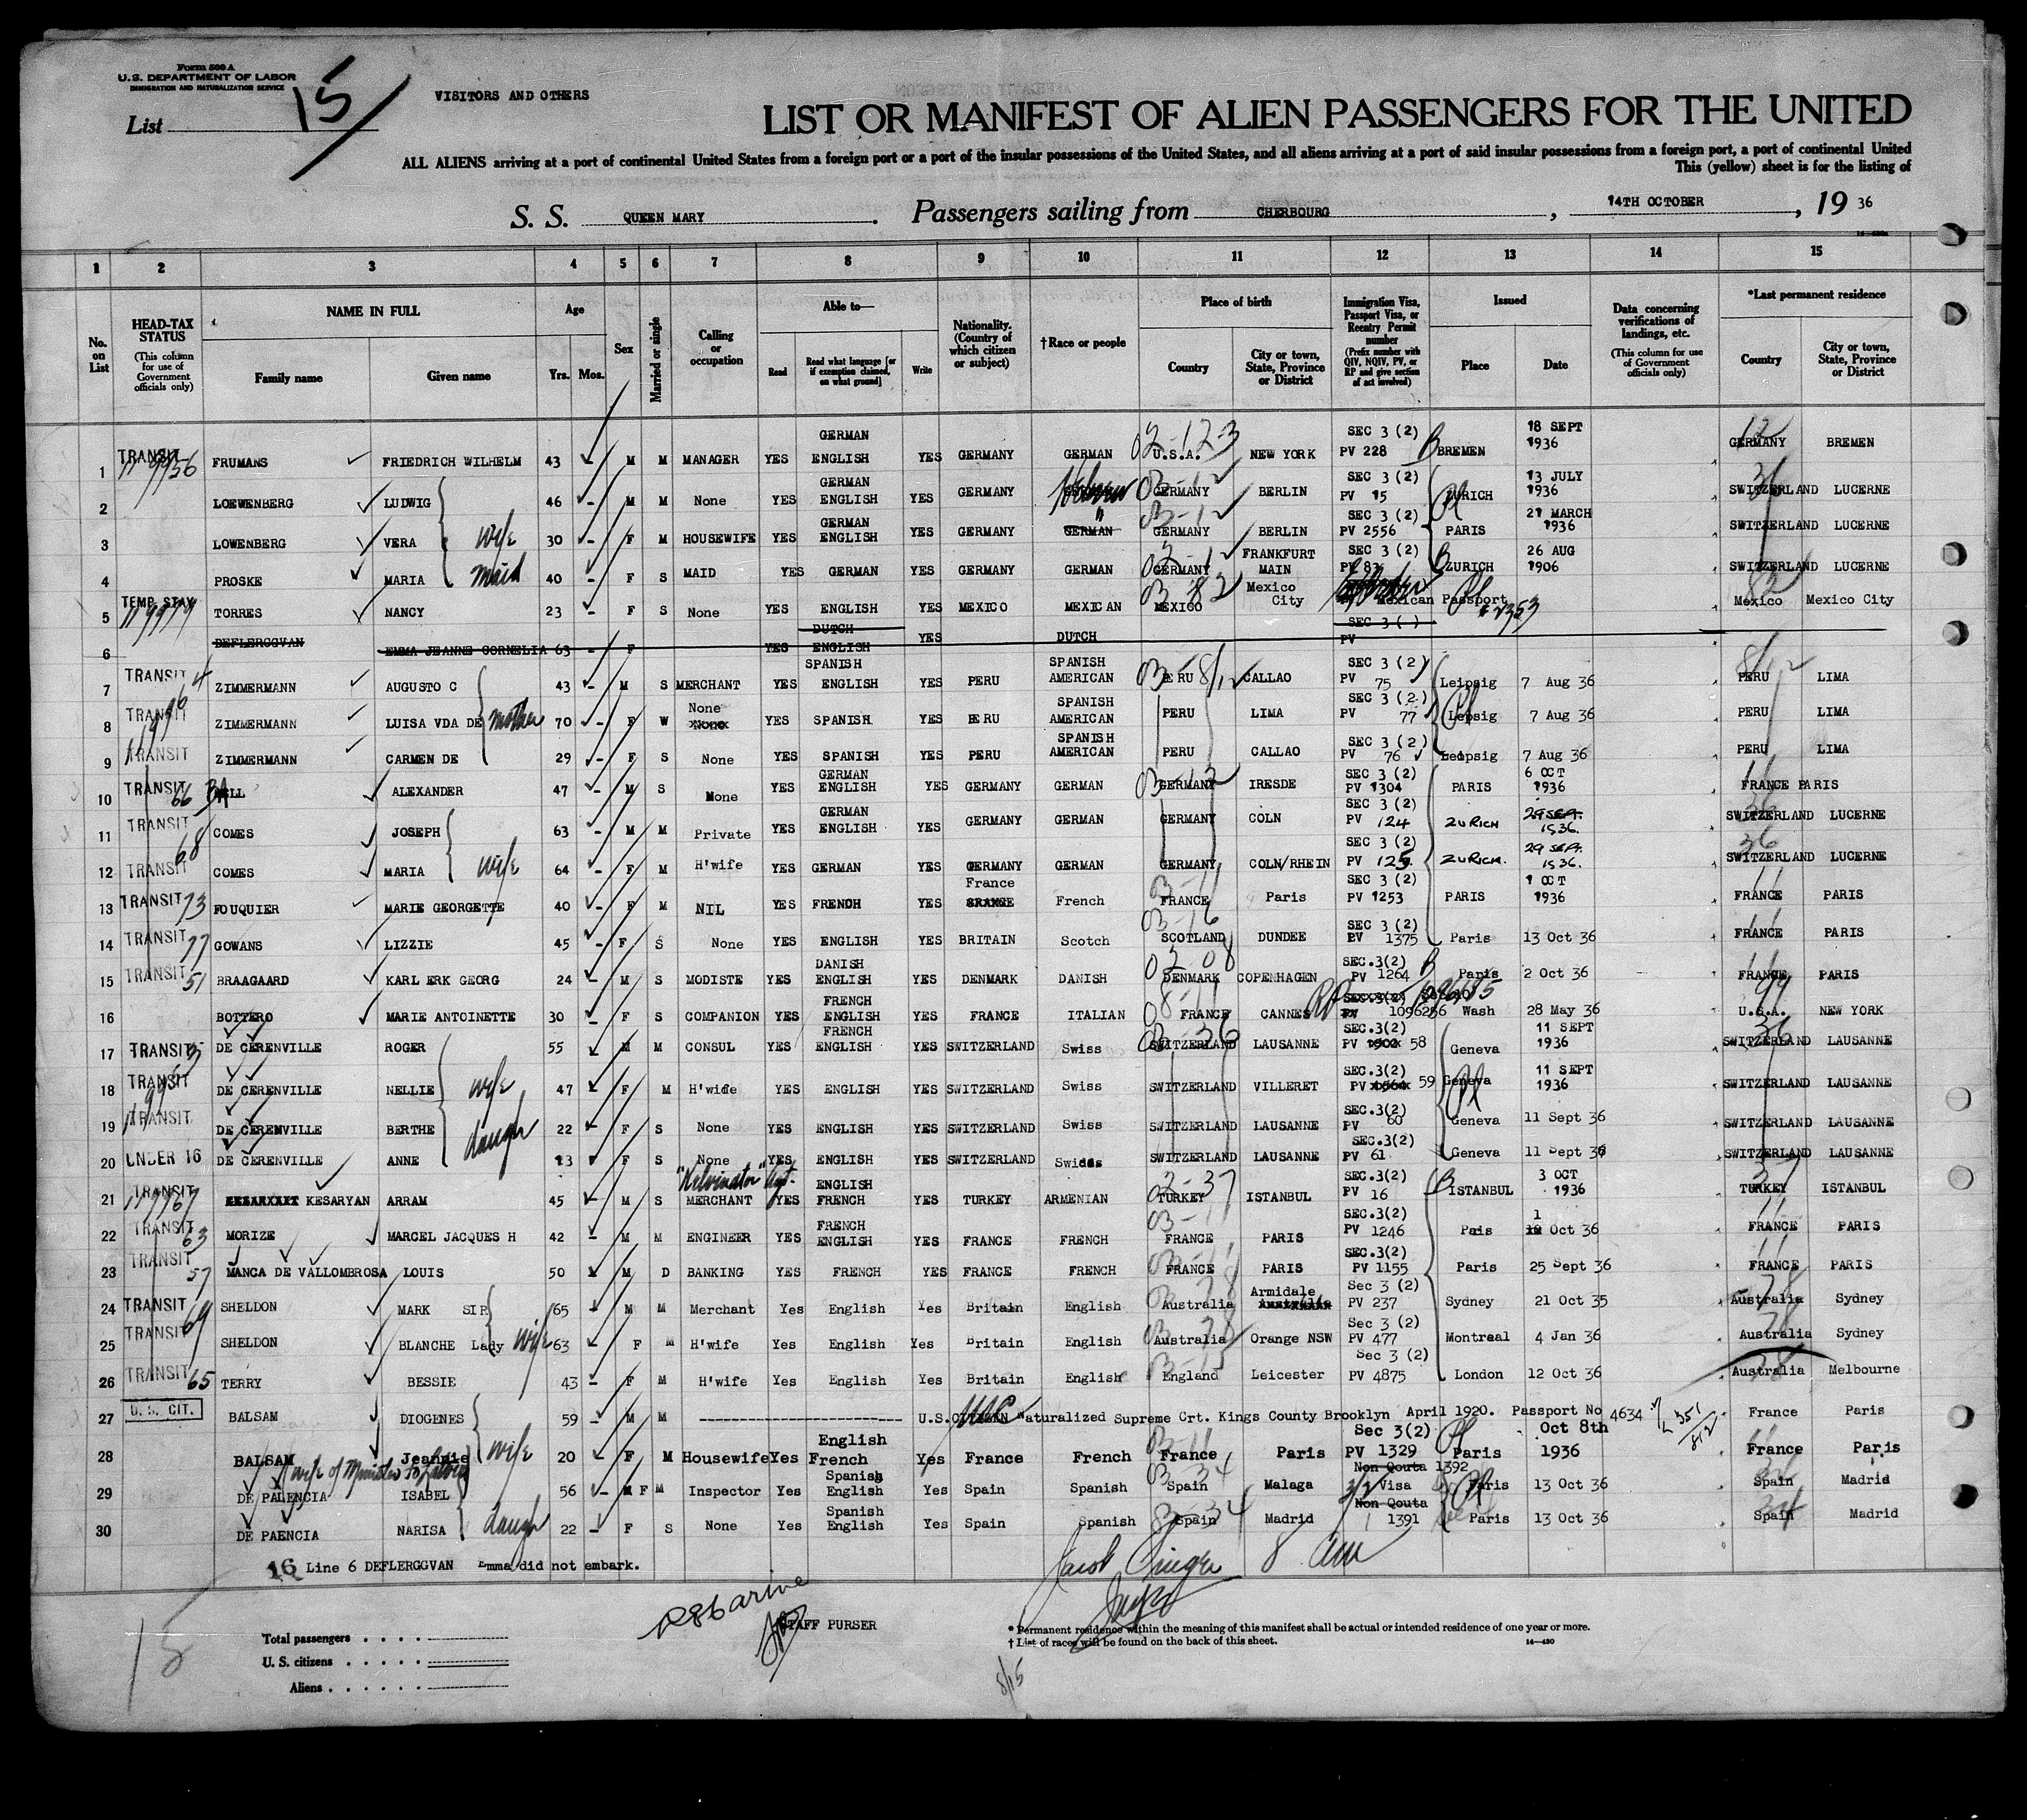 Form 500 A
U.S. DEPARTMENT OF LABOR
IMMIGRATION AND NATURALIZATION SERVICE
List 15
VISITORS AND OTHERS
LIST OR MANIFEST OF ALIEN PASSENGERS FOR THE UNITED
ALL ALIENS arriving at a port of continental United States from a foreign port or a port of the insular possessions of the United States, and all aliens arriving at a port of said insular possessions from a foreign port, a port of continental United
This (yellow) sheet is for the listing of
S. S. QUEEN MARY. Passengers sailing from CHERBOURG, 14TH OCTOBER, 19 36
1 2 3 4 5 6 7 8 9 10 11 12 13 14 15
No. on List
HEAD-TAX STATUS (This column for use of Government officials only)
NAME IN FULL Family name Given name
Age Yrs. Mos.
Sex
Married or single
Calling or occupation
Able to— Read Read what language [or if exemption claimed, on what ground] Write
Nationality. (Country of which citizen or subject)
†Race or people
Place of birth Country City or town, State, Province or District
Immigration Visa, Passport Visa, or Reentry Permit number (Prefix number with QIV, NQIV, PV, or RP and give section of act involved)
Issued Place Date
Data concerning verifications of landings, etc. (This column for use of Government officials only)
*Last permanent residence Country City or town, State, Province or District
1 TRANSIT FRUMANS FRIEDRICH WILHELM 43 M M MANAGER YES GERMAN ENGLISH YES GERMANY GERMAN U.S.A. NEW YORK SEC 3 (2) PV 228 BREMEN 18 SEPT 1936 GERMANY BREMEN
2 LOEWENBERG LUDWIG 46 M M None YES GERMAN ENGLISH YES GERMANY Hebrew GERMANY BERLIN SEC 3 (2) PV 15 ZURICH 13 JULY 1936 SWITZERLAND LUCERNE
3 LOWENBERG VERA wife 30 F M HOUSEWIFE YES GERMAN ENGLISH YES GERMANY GERMAN " GERMANY BERLIN SEC 3 (2) PV 2556 PARIS 21 MARCH 1936 SWITZERLAND LUCERNE
4 PROSKE MARIA maid 40 F S MAID YES GERMAN YES GERMANY GERMAN GERMANY FRANKFURT MAIN SEC 3 (2) PV 83 ZURICH 26 AUG 1906 SWITZERLAND LUCERNE
5 TEMP STAY TORRES NANCY 23 F S None YES ENGLISH YES MEXICO MEXICAN MEXICO Mexico City Mexican Passport # 2353 Mexico Mexico City
6 DEFLERGGVAN EMMA JEANNE CORNELIA 63 F YES DUTCH ENGLISH YES DUTCH SEC 3 ( ) PV
7 TRANSIT ZIMMERMANN AUGUSTO C 43 M S MERCHANT YES SPANISH ENGLISH YES PERU SPANISH AMERICAN PERU CALLAO SEC 3 (2) PV 75 Leipsig 7 Aug 36 PERU LIMA
8 TRANSIT ZIMMERMANN LUISA VDA DE mother 70 F W None YES SPANISH YES PERU SPANISH AMERICAN PERU LIMA SEC 3 (2) PV 77 Lepsig 7 Aug 36 PERU LIMA
9 TRANSIT ZIMMERMANN CARMEN DE 29 F S None YES SPANISH YES PERU SPANISH AMERICAN PERU CALLAO SEC 3 (2) PV 76 Leipsig 7 Aug 36 PERU LIMA
10 TRANSIT 66 BALL ALEXANDER 47 M S None YES GERMAN ENGLISH YES GERMANY GERMAN GERMANY IRESDE SEC 3 (2) PV 1304 PARIS 6 OCT 1936 FRANCE PARIS
11 TRANSIT 68 COMES JOSEPH 63 M M Private YES GERMAN ENGLISH YES GERMANY GERMAN GERMANY COLN SEC 3 (2) PV 124 ZURICH 29 SEPT. 1936. SWITZERLAND LUCERNE
12 TRANSIT COMES MARIA wife 64 F M H'wife YES GERMAN YES GERMANY GERMAN GERMANY COLN/RHEIN SEC 3 (2) PV 125 ZURICH. 29 SEPT. 1936. SWITZERLAND LUCERNE
13 TRANSIT 73 FOUQUIER MARIE GEORGETTE 40 F M NIL YES FRENCH YES France French FRANCE Paris SEC 3 (2) PV 1253 PARIS 1 OCT 1936 FRANCE PARIS
14 TRANSIT 77 GOWANS LIZZIE 45 F S None YES ENGLISH YES BRITAIN Scotch SCOTLAND DUNDEE SEC 3 (2) PV 1375 Paris 13 Oct 36 FRANCE PARIS
15 TRANSIT 51 BRAAGAARD KARL ERK GEORG 24 M S MODISTE YES DANISH ENGLISH YES DENMARK DANISH DENMARK COPENHAGEN SEC.3(2) PV 1264 Paris 2 Oct 36 FRANCE PARIS
16 BOTTERO MARIE ANTOINETTE 30 F S COMPANION YES FRENCH ENGLISH YES FRANCE ITALIAN FRANCE CANNES RP 1096256 Wash 28 May 36 U.S.A. NEW YORK
17 TRANSIT DE CERENVILLE ROGER 55 M M CONSUL YES FRENCH ENGLISH YES SWITZERLAND Swiss SWITZERLAND LAUSANNE SEC.3(2) PV 58 Geneva 11 SEPT 1936 SWITZERLAND LAUSANNE
18 TRANSIT DE CERENVILLE NELLIE wife 47 F M H'wide YES ENGLISH YES SWITZERLAND Swiss SWITZERLAND VILLERET SEC.3(2) PV 59 Geneva 11 SEPT 1936 SWITZERLAND LAUSANNE
19 TRANSIT DE CERENVILLE BERTHE daugh 22 F S None YES ENGLISH YES SWITZERLAND Swiss SWITZERLAND LAUSANNE SEC.3(2) PV 60 Geneva 11 Sept 36 SWITZERLAND LAUSANNE
20 UNDER 16 DE CERENVILLE ANNE 13 F S None YES ENGLISH YES SWITZERLAND SWITZERLAND LAUSANNE SEC.3(2) PV 61 Geneva 11 Sept 36 SWITZERLAND LAUSANNE
21 TRANSIT KESARYAN ARRAM 45 M S "Kelvinator" Agt. MERCHANT YES ENGLISH FRENCH YES TURKEY ARMENIAN TURKEY ISTANBUL SEC.3(2) PV 16 ISTANBUL 3 OCT 1936 TURKEY ISTANBUL
22 TRANSIT 63 MORIZE MARCEL JACQUES H 42 M M ENGINEER YES FRENCH ENGLISH YES FRANCE FRENCH FRANCE PARIS SEC.3(2) PV 1246 Pais 1 Oct 36 FRANCE PARIS
23 TRANSIT 57 MANCA DE VALLOMBROSA LOUIS 50 M D BANKING YES FRENCH YES FRANCE FRENCH FRANCE PARIS SEC.3(2) PV 1155 Paris 25 Sept 36 FRANCE PARIS
24 TRANSIT 69 SHELDON MARK SIR 65 M M Merchant Yes English Yes Britain English Australia Armidale Sec 3 (2) PV 237 Sydney 21 Oct 35 Australia Sydney
25 TRANSIT SHELDON BLANCHE Lady wife 63 F M H'wife Yes English Yes Britain English Australia Orange NSW Sec 3 (2) PV 477 Montreal 4 Jan 36 Australia Sydney
26 TRANSIT 65 TERRY BESSIE 43 F M H'wife Yes English Yes Britain English England Leicester Sec 3 (2) PV 4875 London 12 Oct 36 Australia Melbourne
27 U.S. CIT. BALSAM DIOGENES 59 M M U.S.CITIZEN Naturalized Supreme Crt. Kings County Brooklyn April 1920. Passport No 4634 France Paris
28 BALSAM Jeannie wife 20 F M Housewife Yes English French Yes France French France Paris Sec 3(2) PV 1329 Paris Oct 8th 1936 France Paris
29 DE PALENCIA ISABEL 56 M F M Inspector Yes Spanish English Yes Spain Spanish Spain Malaga Non Qouta 1392 Visa Paris 13 Oct 36 Spain Madrid
30 DE PAENCIA NARISA daugh 22 F S None Yes Spanish English Yes Spain Spanish Spain Madrid Non Qouta 1391 Paris 13 Oct 36 Spain Madrid
16 Line 6 DEFLERGGVAN Emma did not embark.
STAFF PURSER
Total passengers
U. S. citizens
Aliens
* Permanent residence within the meaning of this manifest shall be actual or intended residence of one year or more.
† List of races will be found on the back of this sheet.
14—430
15
8/15